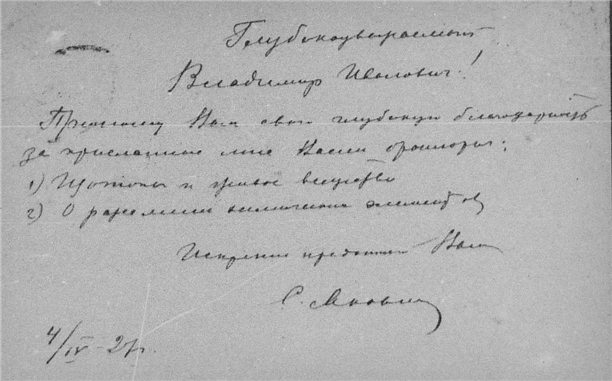 Глубокоуважаемый
Владимир Иванович!
Приношу Вам свою глубокую благодарность
за присланные мне Вами брошюры:
1) Изотопы и живое вещество
2) О рассеянии химических элементов
Искренно преданный Вам
С.
4/IV-27г.